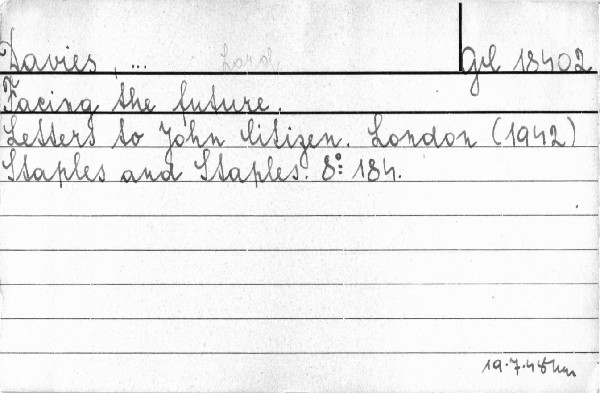 Davies, ... Lord Gl 18402
Facing the future.
Letters to John Citizen. London (1942)
Staples and Staples. 8° 184.
19.7.45